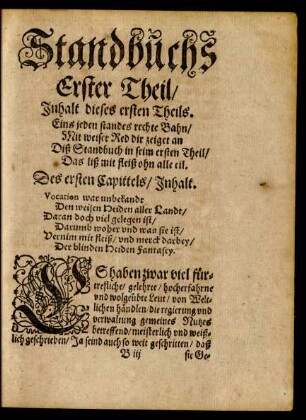 Standbůchs
Erster Theil/
Inhalt dieses ersten Theils.
Eins jeden standes rechte Bahn/
Mit weiser Red dir zeiget an
Diß Standbuch in seim ersten Theil/
Das liß mit fleiß ohn alle eil.
Des ersten Capittels/ Inhalt.
Vocation war unbekandt
Den weisen Heiden aller Landt/
Daran doch viel gelegen ist/
Darumb woher und was sie ist/
Vernim mit fleiß/ und merck darbey/
Der blinden Heiden Fantasey.
ES haben zwar viel für-
treffliche/ gelehrte/ hocherfahrne
und wolgeübte Leut/ von Welt-
lichen händlen/ die regierung und
verwaltung gemeines Nutzes
betreffend/ meisterlich und weiß-
lich geschrieben/ Ja seind auch so weit geschritten/ daß
B iij sie Ge-